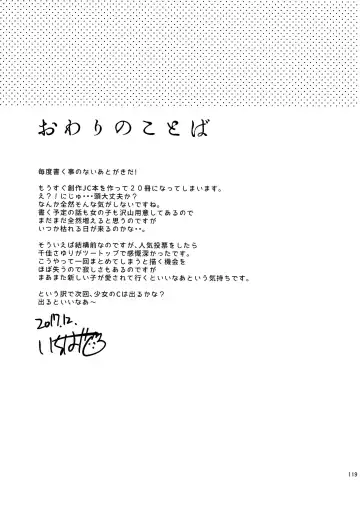 おわりのことば
毎度書く事のないあとがきだ！
もうすぐ創作JC本を作って２０冊になってしまいます。
え？！にじゅ・・・頭大丈夫か？
なんか全然そんな気がしないですね。
書く予定の話も女の子も沢山用意してあるので
まだまだ全然増えると思うのですが
いつか枯れる日が来るのかな・・。
そういえば結構前なのですが、人気投票をしたら
千佳さゆりがツートップで感慨深かったです。
こうやって一回まとめてしまうと描く機会を
ほぼ失うので寂しさもあるのですが
まあまた新しい子が愛されて行くといいなあという気持ちです。
という訳で次回、少女のCは出るかな？
出るといいなあ～
2017.12.
119